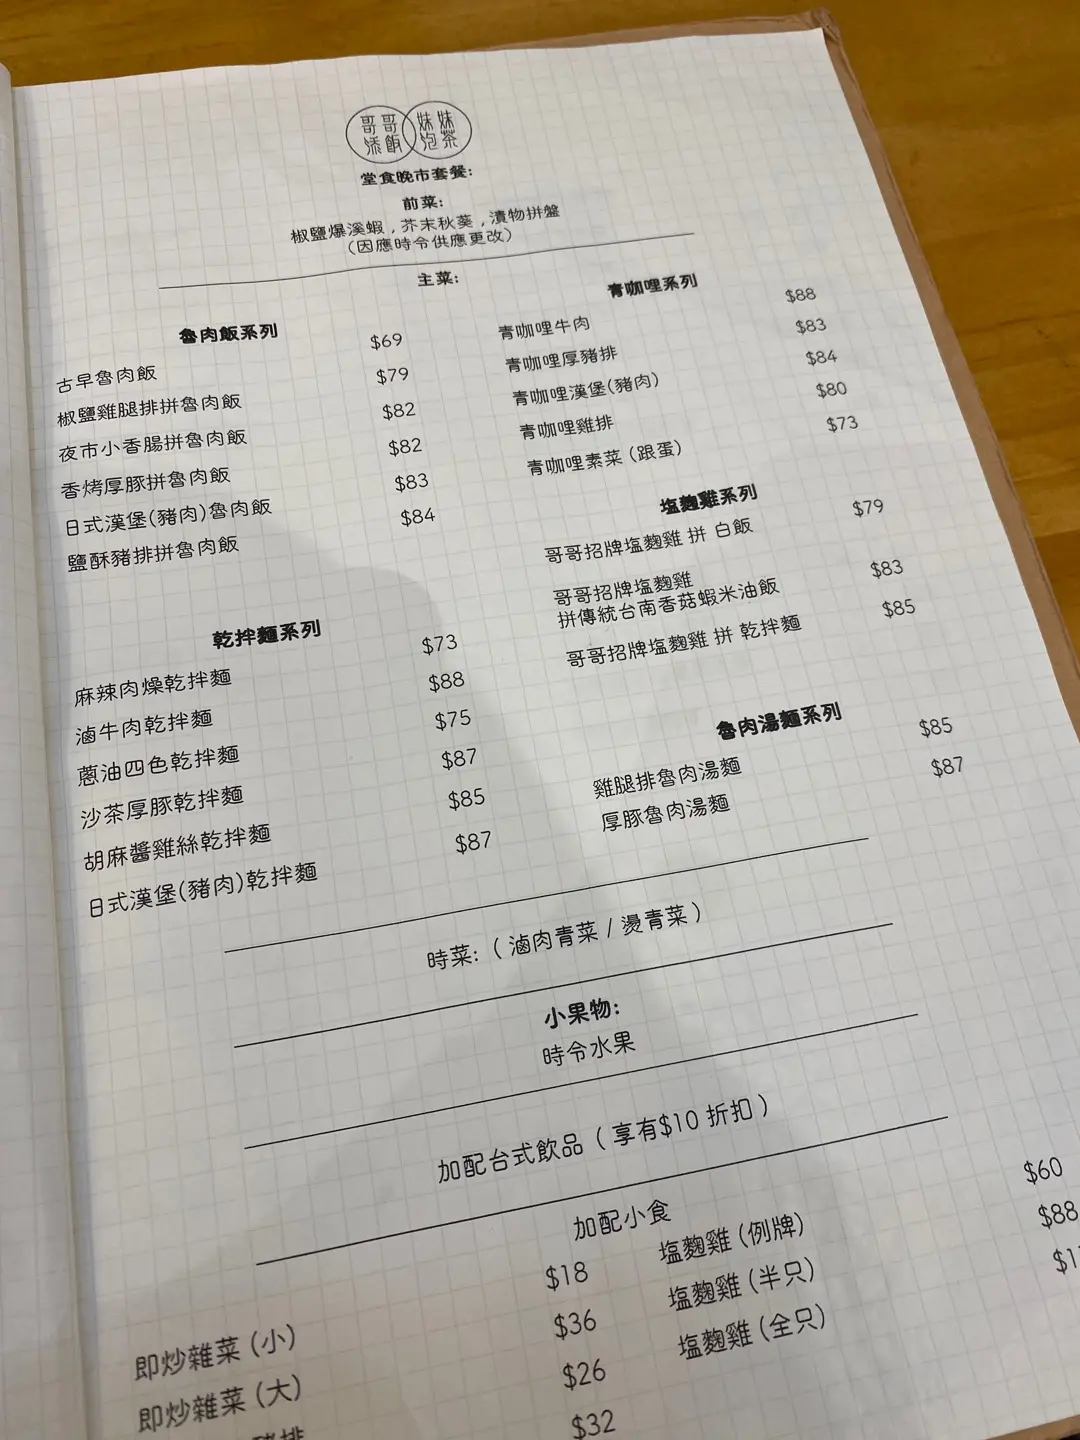 哥哥 妹妹
添飯 泡茶
堂食晚市套餐:
前菜:
椒鹽爆溪蝦 , 芥末秋葵 , 漬物拼盤
(因應時令供應更改)
主菜:
魯肉飯系列
古早魯肉飯 $69
椒鹽雞腿排拼魯肉飯 $79
夜市小香腸拼魯肉飯 $82
香烤厚豚拼魯肉飯 $82
日式漢堡(豬肉)魯肉飯 $83
鹽酥豬排拼魯肉飯 $84
乾拌麵系列
麻辣肉燥乾拌麵 $73
滷牛肉乾拌麵 $88
蔥油四色乾拌麵 $75
沙茶厚豚乾拌麵 $87
胡麻醬雞絲乾拌麵 $85
日式漢堡(豬肉)乾拌麵 $87
青咖哩系列
青咖哩牛肉 $88
青咖哩厚豬排 $83
青咖哩漢堡(豬肉) $84
青咖哩雞排 $80
青咖哩素菜 (跟蛋) $73
塩麴雞系列
哥哥招牌塩麴雞 拼 白飯 $79
哥哥招牌塩麴雞
拼傳統台南香菇蝦米油飯 $83
哥哥招牌塩麴雞 拼 乾拌麵 $85
魯肉湯麵系列
雞腿排魯肉湯麵 $85
厚豚魯肉湯麵 $87
時菜: ( 滷肉青菜 / 燙青菜 )
小果物:
時令水果
加配台式飲品 ( 享有$10 折扣 )
加配小食
即炒雜菜 (小) $18
即炒雜菜 (大) $36
豬排 $26
$32
塩麴雞 (例牌) $60
塩麴雞 (半只) $88
塩麴雞 (全只)